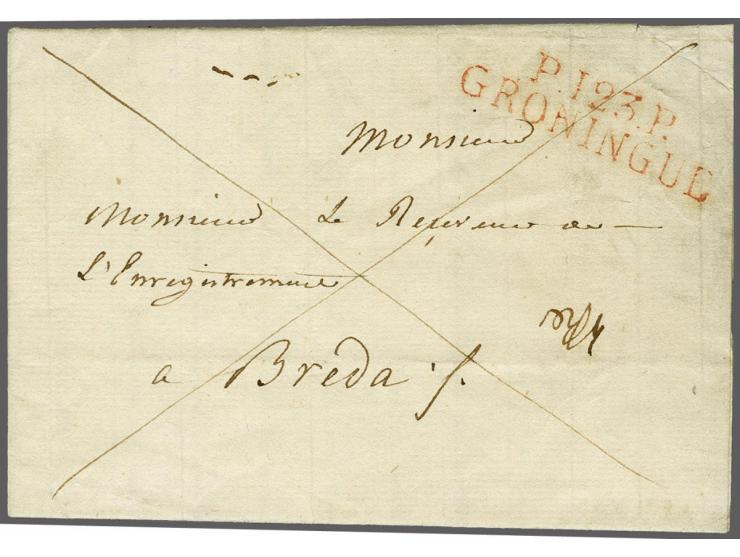 P.123.P.
GRONINGUE
Monsieur
Monsieur Le Receveur de
L'Enregistrement
a Breda